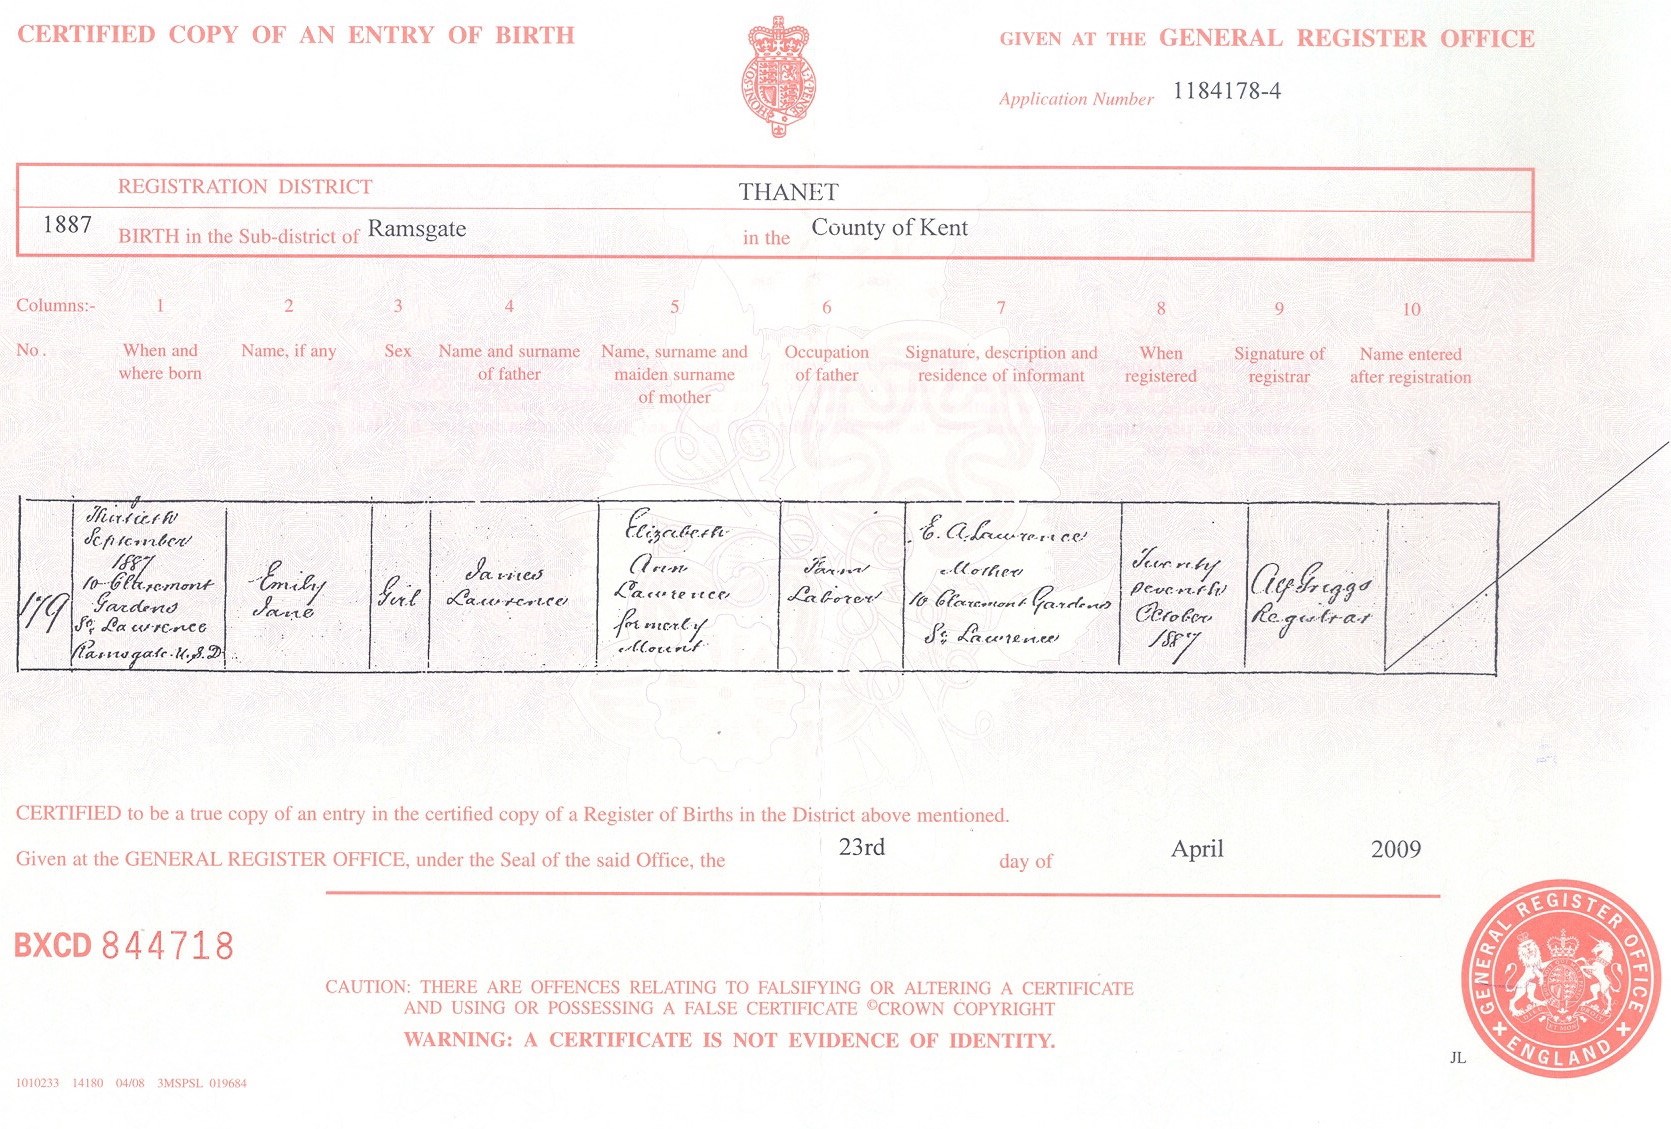 CERTIFIED COPY OF AN ENTRY OF BIRTH
GIVEN AT THE GENERAL REGISTER OFFICE
HONI·SOIT·QUI·MAL·Y·PENSE
Application Number 1184178-4
REGISTRATION DISTRICT THANET
1887 BIRTH in the Sub-district of Ramsgate in the County of Kent
Columns:- 1 2 3 4 5 6 7 8 9 10
No. When and where born
Name, if any
Sex
Name and surname of father
Name, surname and maiden surname of mother
Occupation of father
Signature, description and residence of informant
When registered
Signature of registrar
Name entered after registration
179
Thirtieth
September
1887
10 Claremont
Gardens
St. Lawrence
Ramsgate. U.S.D.
Emily
Jane
Girl
James
Lawrence
Elizabeth
Ann
Lawrence
formerly
Mount
Farm
Laborer
E. A. Lawrence
Mother
10 Claremont Gardens
St. Lawrence
Twenty
seventh
October
1887
Alf Griggs
Registrar
CERTIFIED to be a true copy of an entry in the certified copy of a Register of Births in the District above mentioned.
Given at the GENERAL REGISTER OFFICE, under the Seal of the said Office, the 23rd day of April 2009
BXCD 844718
CAUTION: THERE ARE OFFENCES RELATING TO FALSIFYING OR ALTERING A CERTIFICATE
AND USING OR POSSESSING A FALSE CERTIFICATE ©CROWN COPYRIGHT
WARNING: A CERTIFICATE IS NOT EVIDENCE OF IDENTITY.
GENERAL REGISTER OFFICE
ENGLAND
JL
1010233 14180 04/08 3MSPSL 019684